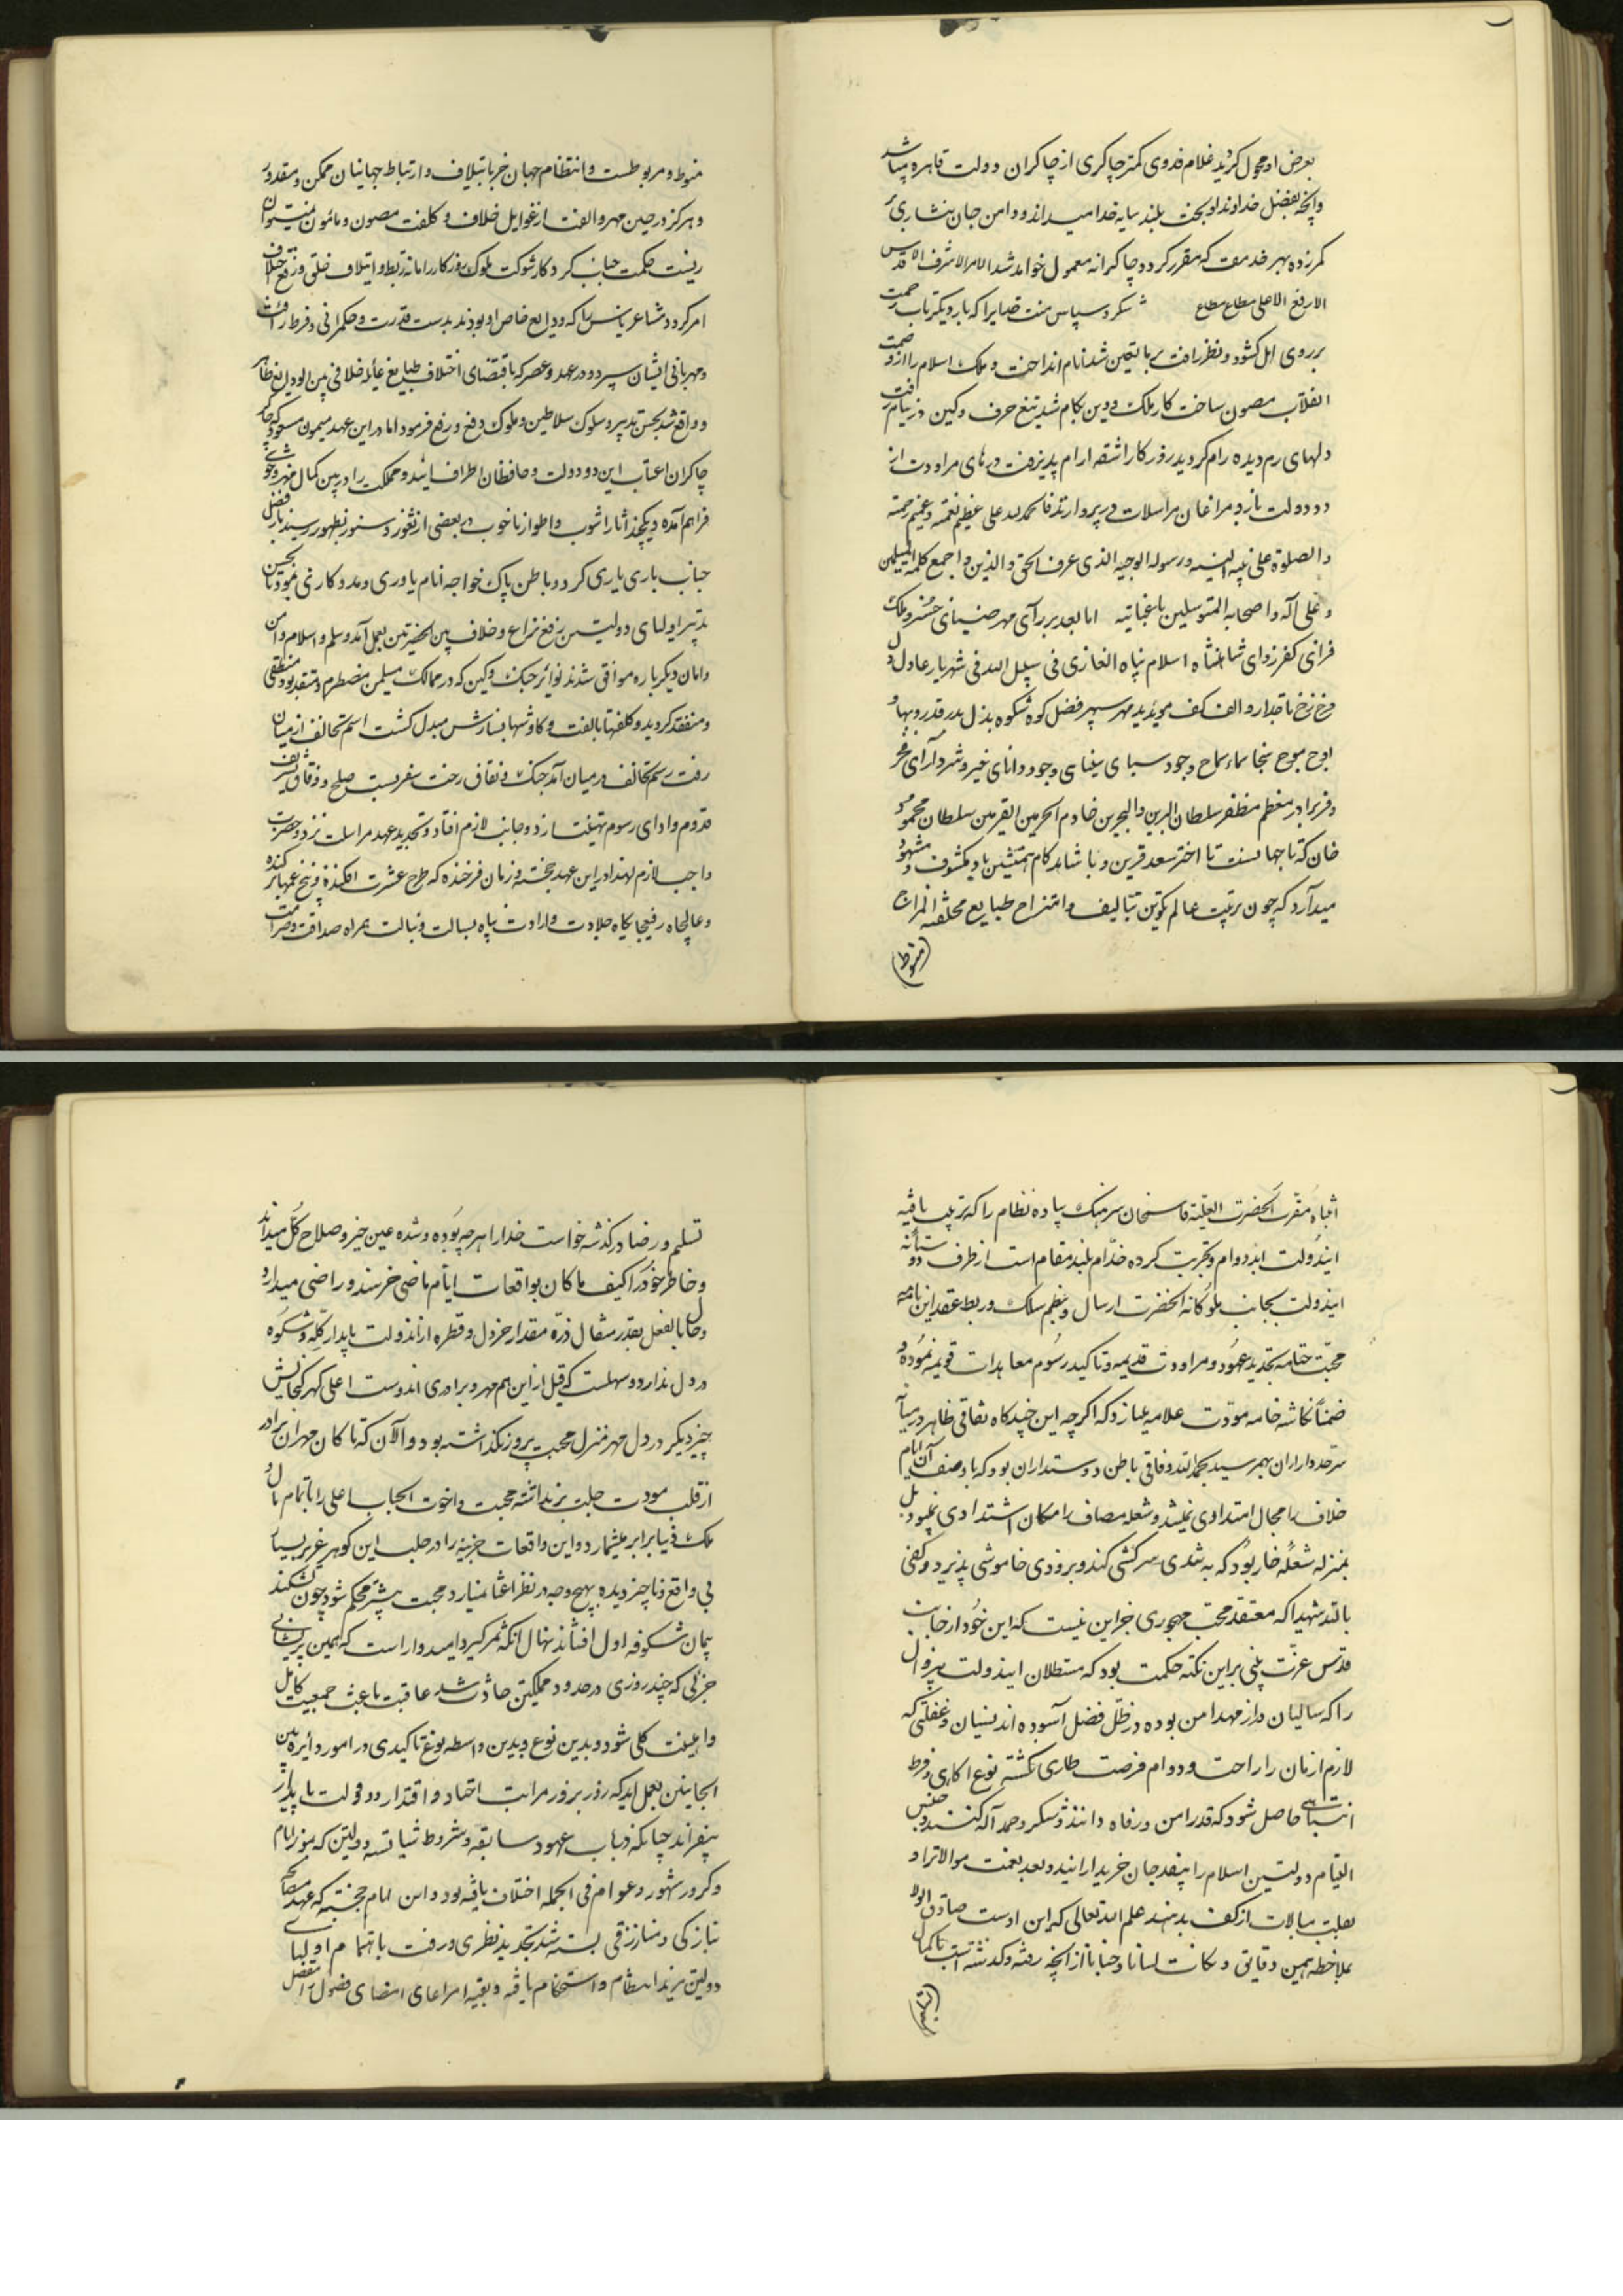 بعرض او محول گردید غلام فدوی کمتر چاکری از چاکران دولت قاهره میباشد
و آنچه بفضل خداوند او بخت بلند سایه خدا میداند و دامن جان نثاری
کمر زده بهر خدمت که مقرر گردد چاکرانه معمول خواهد شد الامر الاشرف الاقدس
الارفع الاعلی مطاع مطاع شکر و سپاس منت خدایرا که بار دیگر باب رحمت
بر روی اهل کشود و نظر رافت انام انداخت و ملک اسلام را از
انقلاب مصون ساخت کار ملک و دین بکام شد تیغ حرف و کین در نیام رفت
دلهای رم دیده رام گردید روزگار آشفته آرام پذیرفت درهای مراودت از
دو دولت باز و مرغان مراسلات در پرواز فالحمد لله علی عظیم نعمته و عمیم رحمته
والصلوة علی نبیه النبیه و رسوله الوجیه الذی عرف الحق والدین واجمع کلمة المسلمین
و علی آله و اصحابه المتوسلین اما بعد بر رای مهر ضیای خسرو ملک
فزای کفر زدای شاهنشاه اسلام پناه الغازی فی سبیل الله شهریار عادل
سپهر فضل کوه شکوه بذل بدر قدر و بها
اوج موج سخا سماء سماح و جود دانای خیر و شر
و فر برادر معظم مظفر سلطان البرین والبحرین خادم الحرمین سلطان محمود
خان که تا جهانست با اختر سعد قرین و با شاهد کام همنشین باد مکشوف و مشهود
میدارد که چون ترتیب عالم تکوین بتالیف و امتزاج طبایع مختلفة المزاج
(منوط)
منوط و مربوطست و انتظام جهان جز بایتلاف و ارتباط جهانیان ممکن و مقدور
و هرگز در حین مهر و الفت از غوایل خلاف و کلفت مصون و مامون
حکمت جناب کردگار شوکت ملوک روزگار را مانه ربط و ایتلاف خلق و رفع خلاف
امر کرد و مشاعر ناس را که ودایع خاص او بودند بدست قدرت و حکمرانی و فرط رافت
و مهربانی ایشان سپرد و در عهد و عصر که باقتضای اختلاف طبایع غائله خلافی بین الودایع ظاهر
و واقع شد بحسن تدبیر و سلوک سلاطین و ملوک دفع و رفع فرمود اما در این عهد میمون مسعود که
چاکران اعتاب این دو دولت و حافظان اطراف این دو مملکت را در بین کمال
فراهم آمده و یکچند آثار آشوب و اطوار ناخوب در بعضی از ثغور و سنور بظهور رسید باز فضل
جناب باری یاری کرد و باطن پاک خواجه انام یاوری و مددکاری نمود تا بحسن
تدبیر اولیای دولتین رفع نزاع و خلاف بین الحضرتین بعمل آمد و سلم و اسلام و امن
و امان دیگر باره موافق شدند نوائر جنگ و کین که در ممالک مسلمین مضطرم و متقد بود منطفی
گردید و کلفتها بالفت و کاوشها بسازش مبدل گشت اسم تخالف از میان
رفت رسم تحالف در میان آمد جنگ و نفاق رخت سفر بست صلح و وفاق تشریف
قدوم و ادای رسوم تهنیت از دو جانب لازم افتاد و تجدید عهد مراسلت نزد دو حضرت
واجب و لازم لهذا در این عهد خجسته و زمان فرخنده که طرح عشرت افکنده و بیخ غمها برکنده
و عالیجاه رفیعجایگاه جلادت و ارادت پناه بسالت و نبالت همراه صداقت و صرامت
انتباه مقرب الحضرت العلیه قاسمخان سرهنگ پیاده نظام را که تربیت یافته
ایندولت ابد دوام و تجربت کرده خدام بلند مقام است از طرف دوستانه
ایندولت بجانب ملوکانه آنحضرت ارسال و بنظم سلک و ربط عقد این نامه
محبت ختامه تجدید عهود و مراودت قدیمه و تاکید رسوم معاهدات قویمه نموده و
ضمناً نگاشته خامه مودت علامه میسازد که اگر چه این چندگاه نفاقی ظاهر در میان
سرحدداران بهم رسید بحمد الله وفاق باطن دوستداران بود که با وصف آن ایام
خلاف را مجال امتدادی نمیشد و شعله مصاف را امکان اشتدادی نبود بل
بمنزله شعله خار بود که به تندی سرکشی کند و بزودی خاموشی پذیرد و کفی
بالله شهیدا که معتقد محب مهجور جز این نیست که این خود از جانب
قدس عزت مبنی بر این نکته حکمت بود که مستظلان ایندولت بیزوال
را که سالیان دراز مهد امن بوده در ظل فضل آسوده اند نسیان و غفلتی که
لازم ازمان راحت و دوام فرصت طاری نگشته نوع آگاهی و فرط
انتباهی حاصل شود که قدر امن و رفاه دانند و شکر و حمد آله کنند و
التیام دولتین اسلام را بنقد جان خریدار آیند و بعد نعمت موالات را
بعلت مبالات از کف ندهند علم الله تعالی که این دوست صادق الولا
بملاحظه همین دقایق و نکات لسانا و جنانا از آنچه رفته و گذشته است با کمال
(تسلیم)
تسلیم و رضا در گذشته خواست خدا را هر چه بوده و شده عین خیر و صلاح کل میداند
و خاطر خود را کیف ما کان بواقعات ایام ماضی خرسند و راضی میدارد
و حال بالفعل بقدر مثقال ذره مقدار خردل و قطره از اندولت پایدار گله و شکوه
در دل ندارد و سهلست که قبل از این هم مهر و برادری اندوست اعلی گهر گنجایش
چیز دیگر در دل مهر منزل محبت پرور نگذاشته بود و الآن کما کان مهر آن برادر
از قلب مودت جلب برنداشته محبت و اخوت الجناب اعلی را با تمام مال و
ملک دنیا برابر میشمارد و این واقعات جزئیه را در جلب این گوهر عزیز بسیار
بی واقع و ناچیز دیده بهیچ وجه در نظر اعتنا نمیارد محبت بیشتر محکم شود چون بشکند
پیمان شکوفه اول افشاند نهال آنگه ثمر گیرد امیدوار است که همین پریشانی
جزئی که چند روزی در حدود مملکتین حادث شد عاقبت باعث جمعیت کامل
و امنیت کلی شود و بدین نوع و بدین واسطه نوع تاکیدی در امور دایره بین
الجانبین بعمل آید که روز بروز مراتب اتحاد و اقتدار دو دولت پایدار
بیفزاید چنانکه در باب عهود سابقه و شروط شایسته دولتین که بمرور ایام
و کرور شهور و اعوام فی الجمله اختلاف یافته بود در این ایام خجسته که عهد مصالحه
بتازگی و مبارزقی بسته شد تجدید نظری و رفت باهتمام اولیای
دولتین مزید انتظام و استحکام یافته و بقیه امر اعای امضای فصول